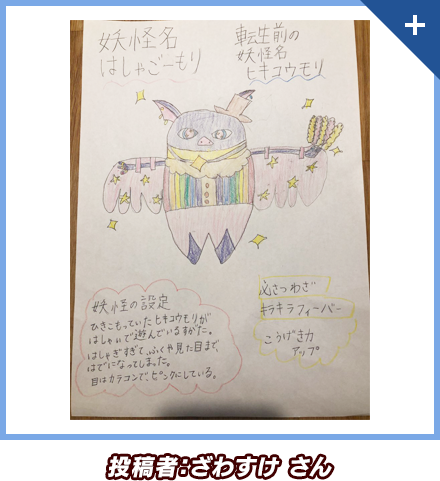 妖怪名
はしゃごーもり
転生前の
妖怪名
ヒキコウモリ
妖怪の設定
ひきこもっていたヒキコウモリが
はしゃいで遊んでいるすがた。
はしゃぎすぎて、ふくや見た目まで、
はでになってしまった。
目はカラコンで、ピンクにしている。
必さつわざ
キラキラフィーバー
こうげき力
アップ
投稿者：ざわすけ さん